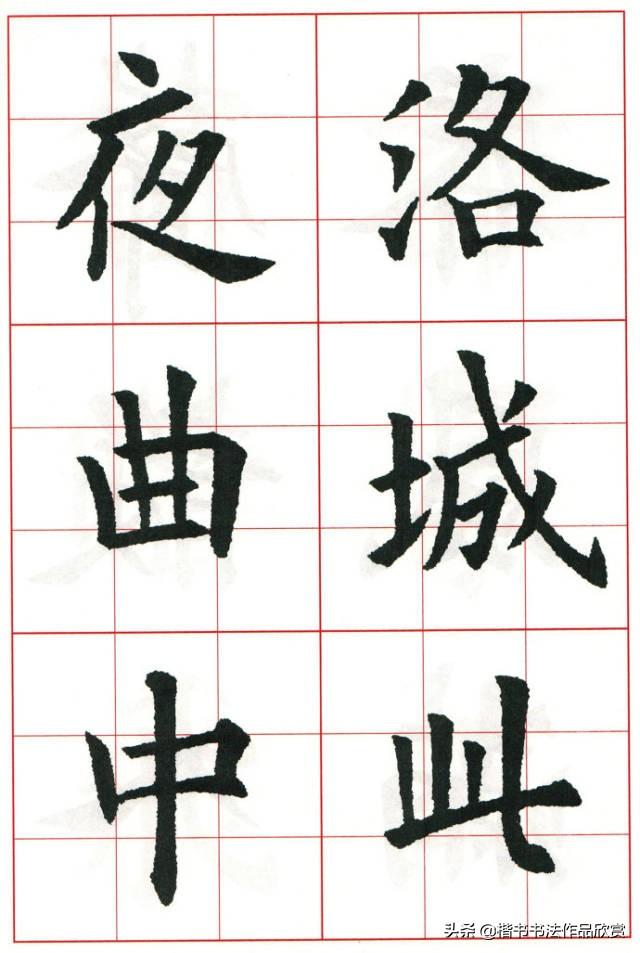 洛城此
夜曲中
头条 @楷书书法作品欣赏